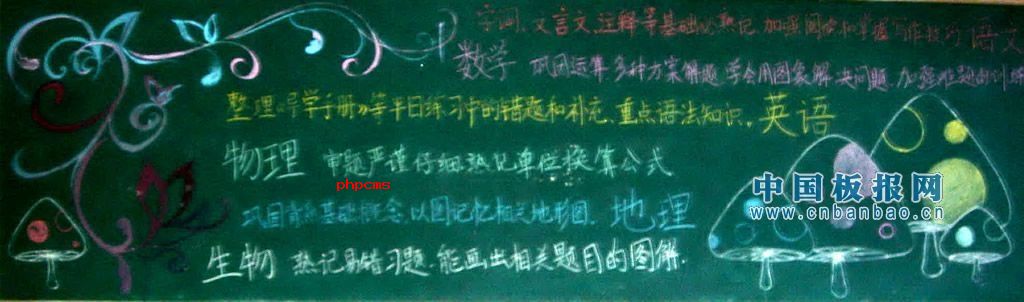 字词、文言文注释等基础必熟记,加强阅读和掌握写作技巧 语文
数学 巩固运算多种方案解题,学会用图象解决问题,加强难题的训练
整理《导学手册》等平日练习中的错题和补充,重点语法知识。英语
物理 审题严谨仔细熟记单位换算公式
phpcms
巩固基础概念,以图记忆相关地形图. 地理
生物 熟记易错习题.能画出相关题目的图解.
中国板报网
www.cnbanbao.cn